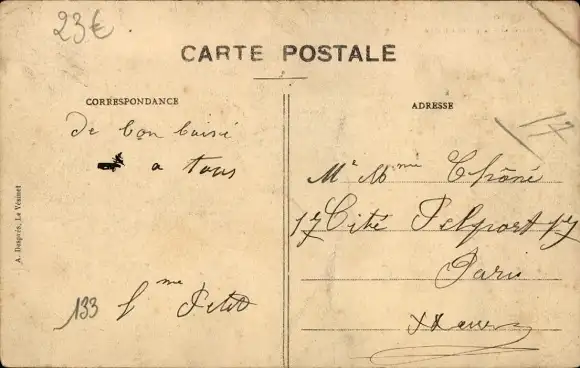 23€
CARTE POSTALE
CORRESPONDANCE
De bon baisé
a tous
fme Petit
133
A. Desprées, Le Vésinet
ADRESSE
17
Mr Mme Chôné
17 Cité Pelport 17
Paris